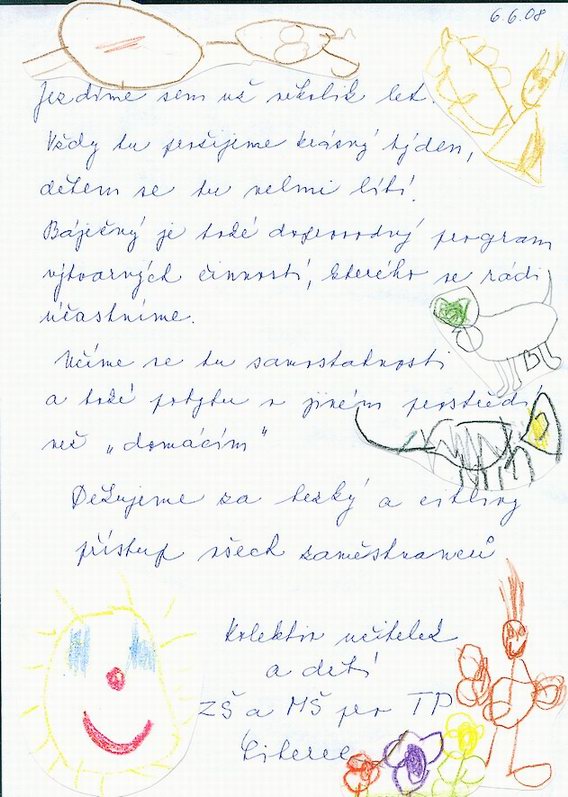 6.6.08
Jezdíme sem už několik let.
Vždy tu prožijeme krásný týden,
dětem se tu velmi líbí.
Báječný je také doprovodný program
výtvarných činností, kterého se rádi
účastníme.
Učíme se tu samostatnosti
a také pobytu v jiném prostředí
než „domácím"
Děkujeme za hezký a citlivý
přístup všech zaměstnanců
Kolektiv učitelek
a dětí
ZŠ a MŠ pro TP
Liberec